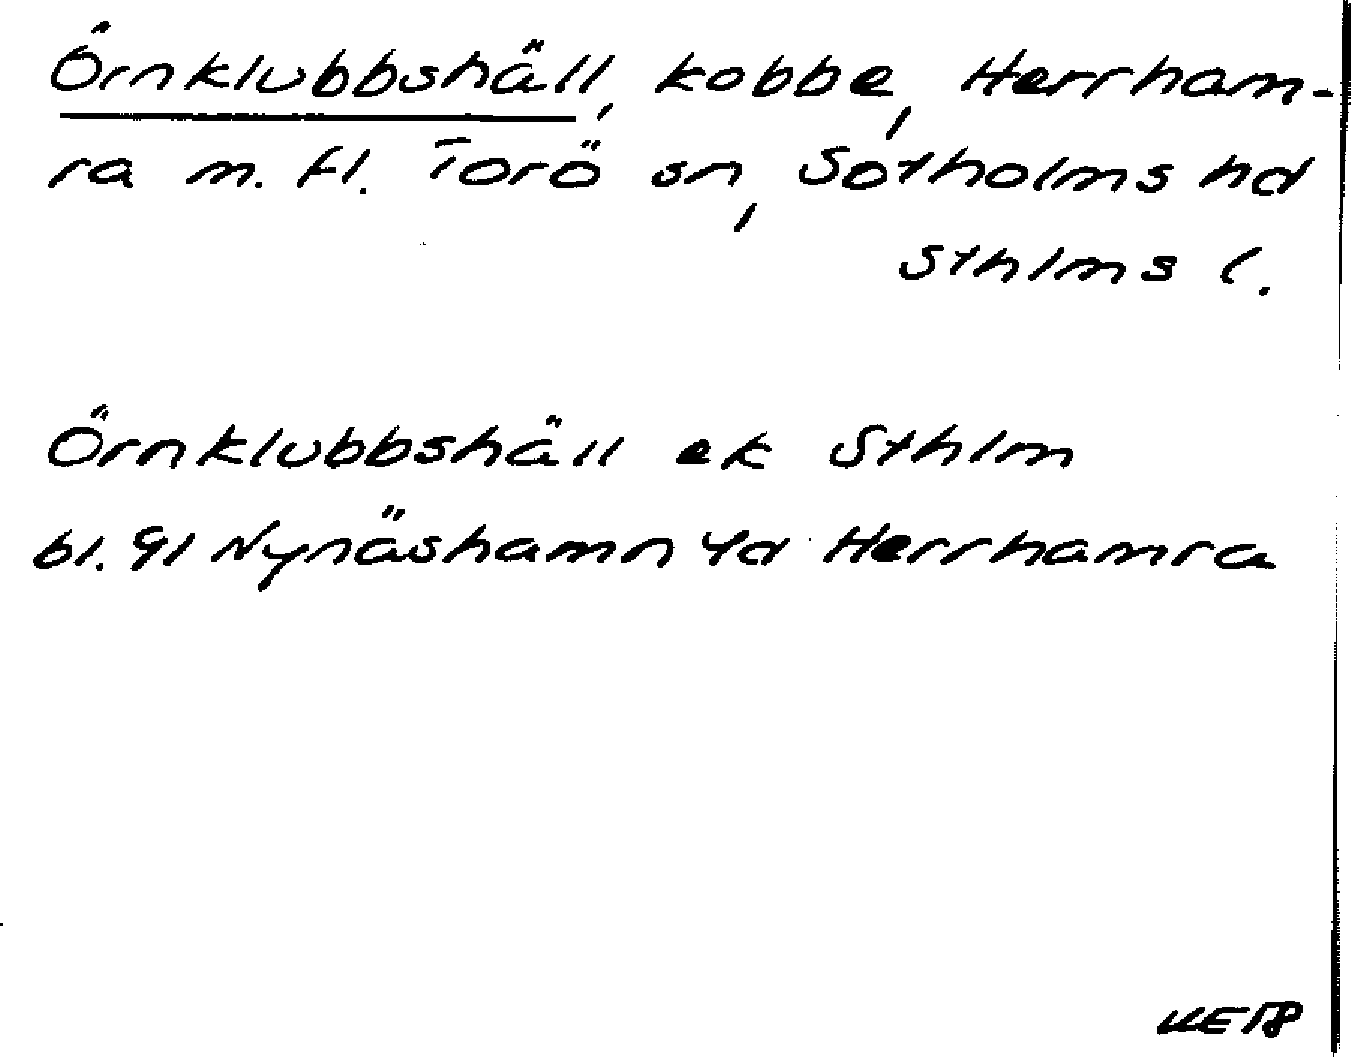 Örnklubbshäll, kobbe, Herrham-
ra m. fl. Torö sn, Sotholms hd
Sthlms l.
Örnklubbshäll ek Sthlm
bl. 91 Nynäshamn 4d Herrhamra